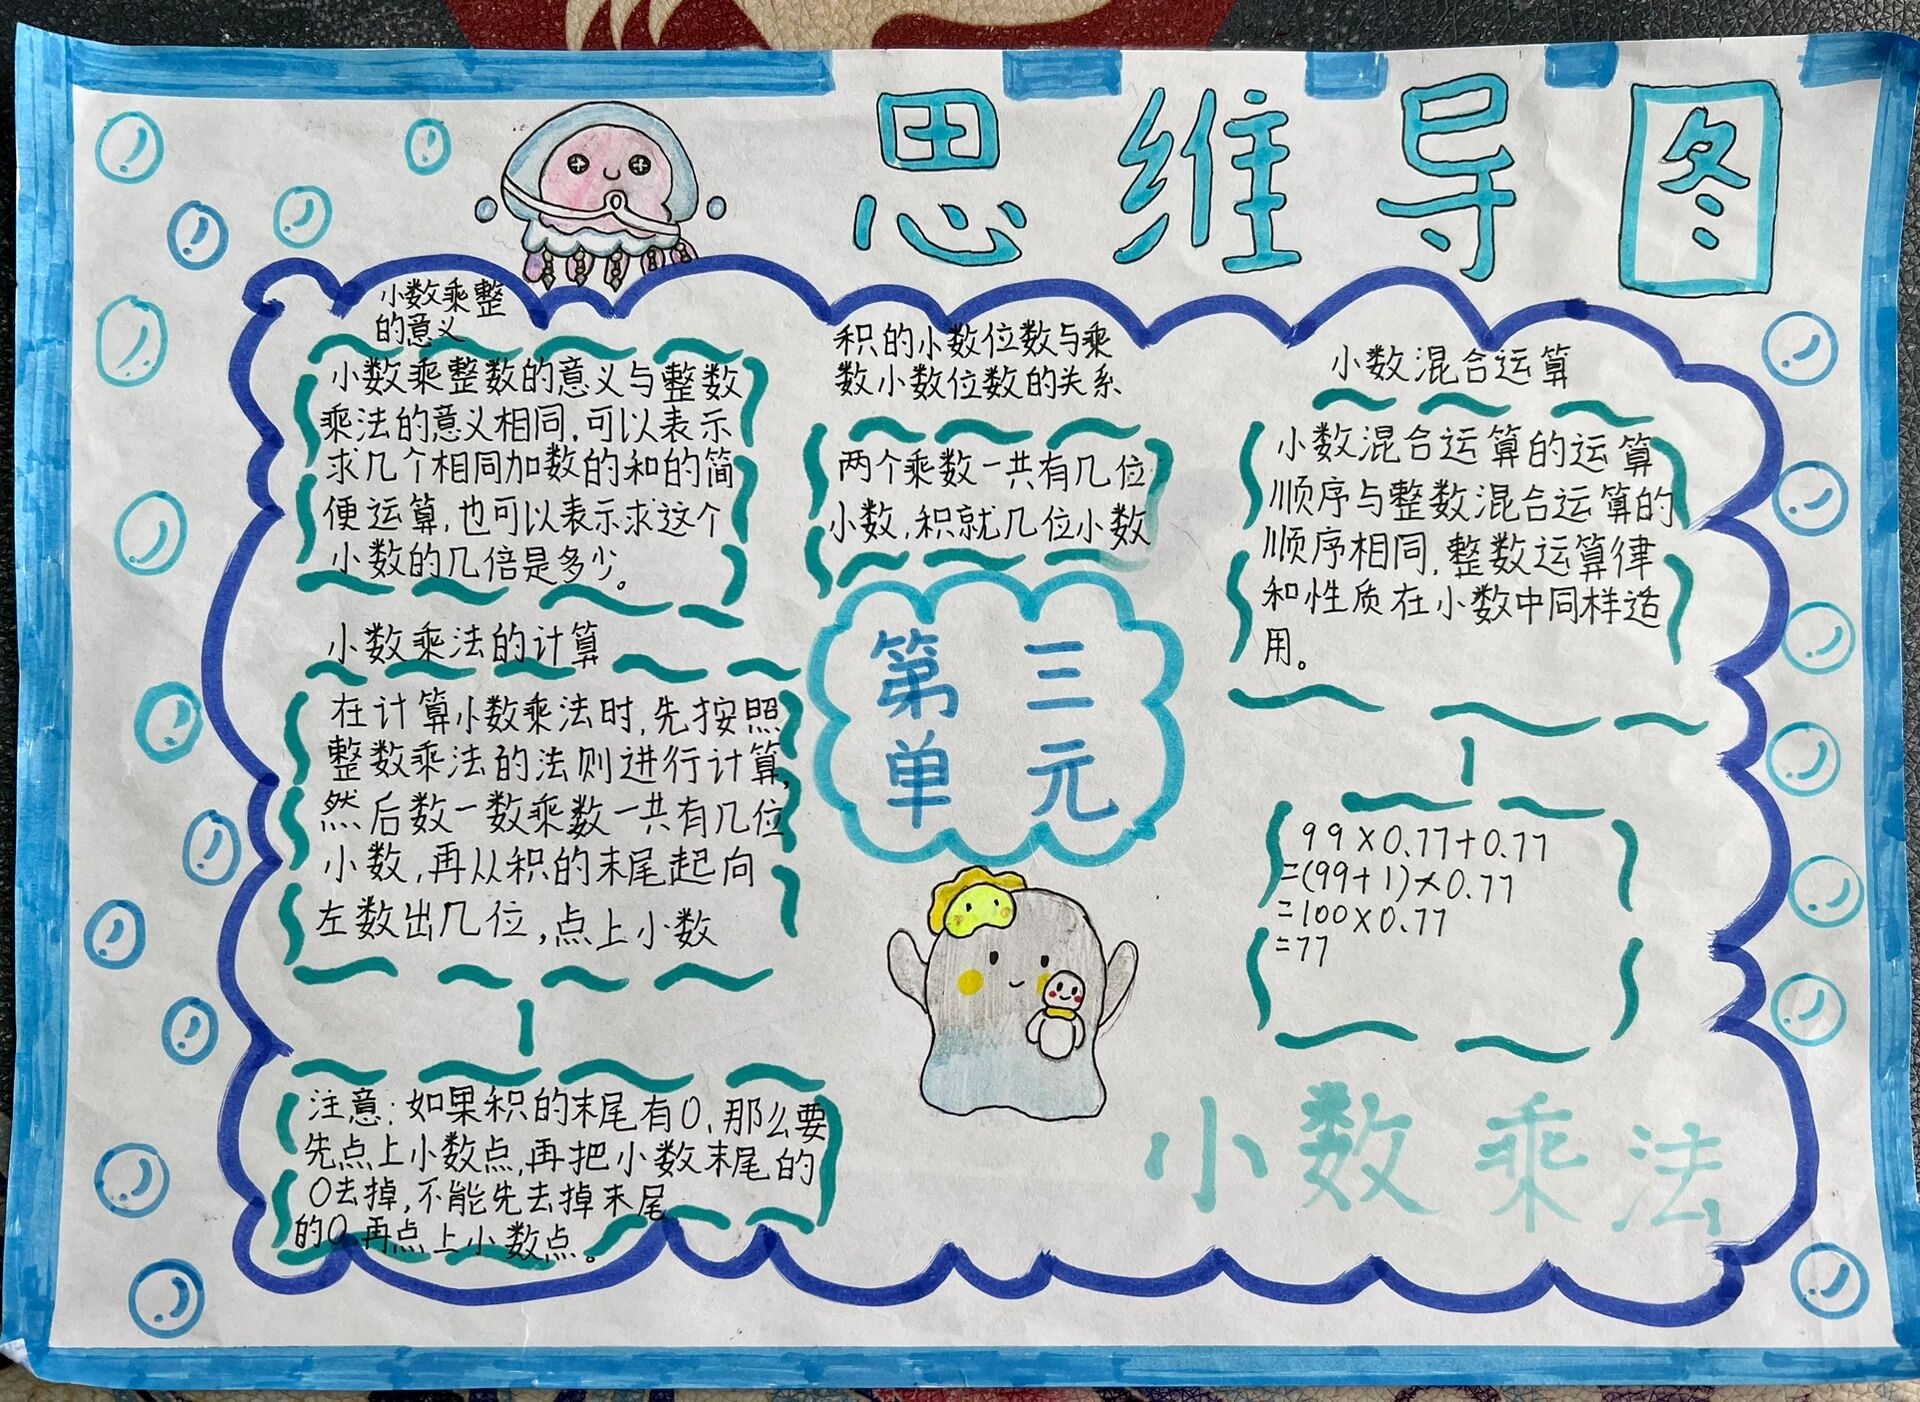 思维导图
小数乘整
的意义
小数乘整数的意义与整数
乘法的意义相同,可以表示
求几个相同加数的和的简
便运算,也可以表示求这个
小数的几倍是多少。
小数乘法的计算
在计算小数乘法时,先按照
整数乘法的法则进行计算,
然后数一数乘数一共有几位
小数,再从积的末尾起向
左数出几位,点上小数
注意:如果积的末尾有0,那么要
先点上小数点,再把小数末尾的
0去掉,不能先去掉末尾
的0,再点上小数点。
积的小数位数与乘
数小数位数的关系
两个乘数一共有几位
小数,积就几位小数
第三
单元
小数混合运算
小数混合运算的运算
顺序与整数混合运算的
顺序相同,整数运算律
和性质在小数中同样适
用。
99×0.77+0.77
=(99+1)×0.77
=100×0.77
=77
小数乘法